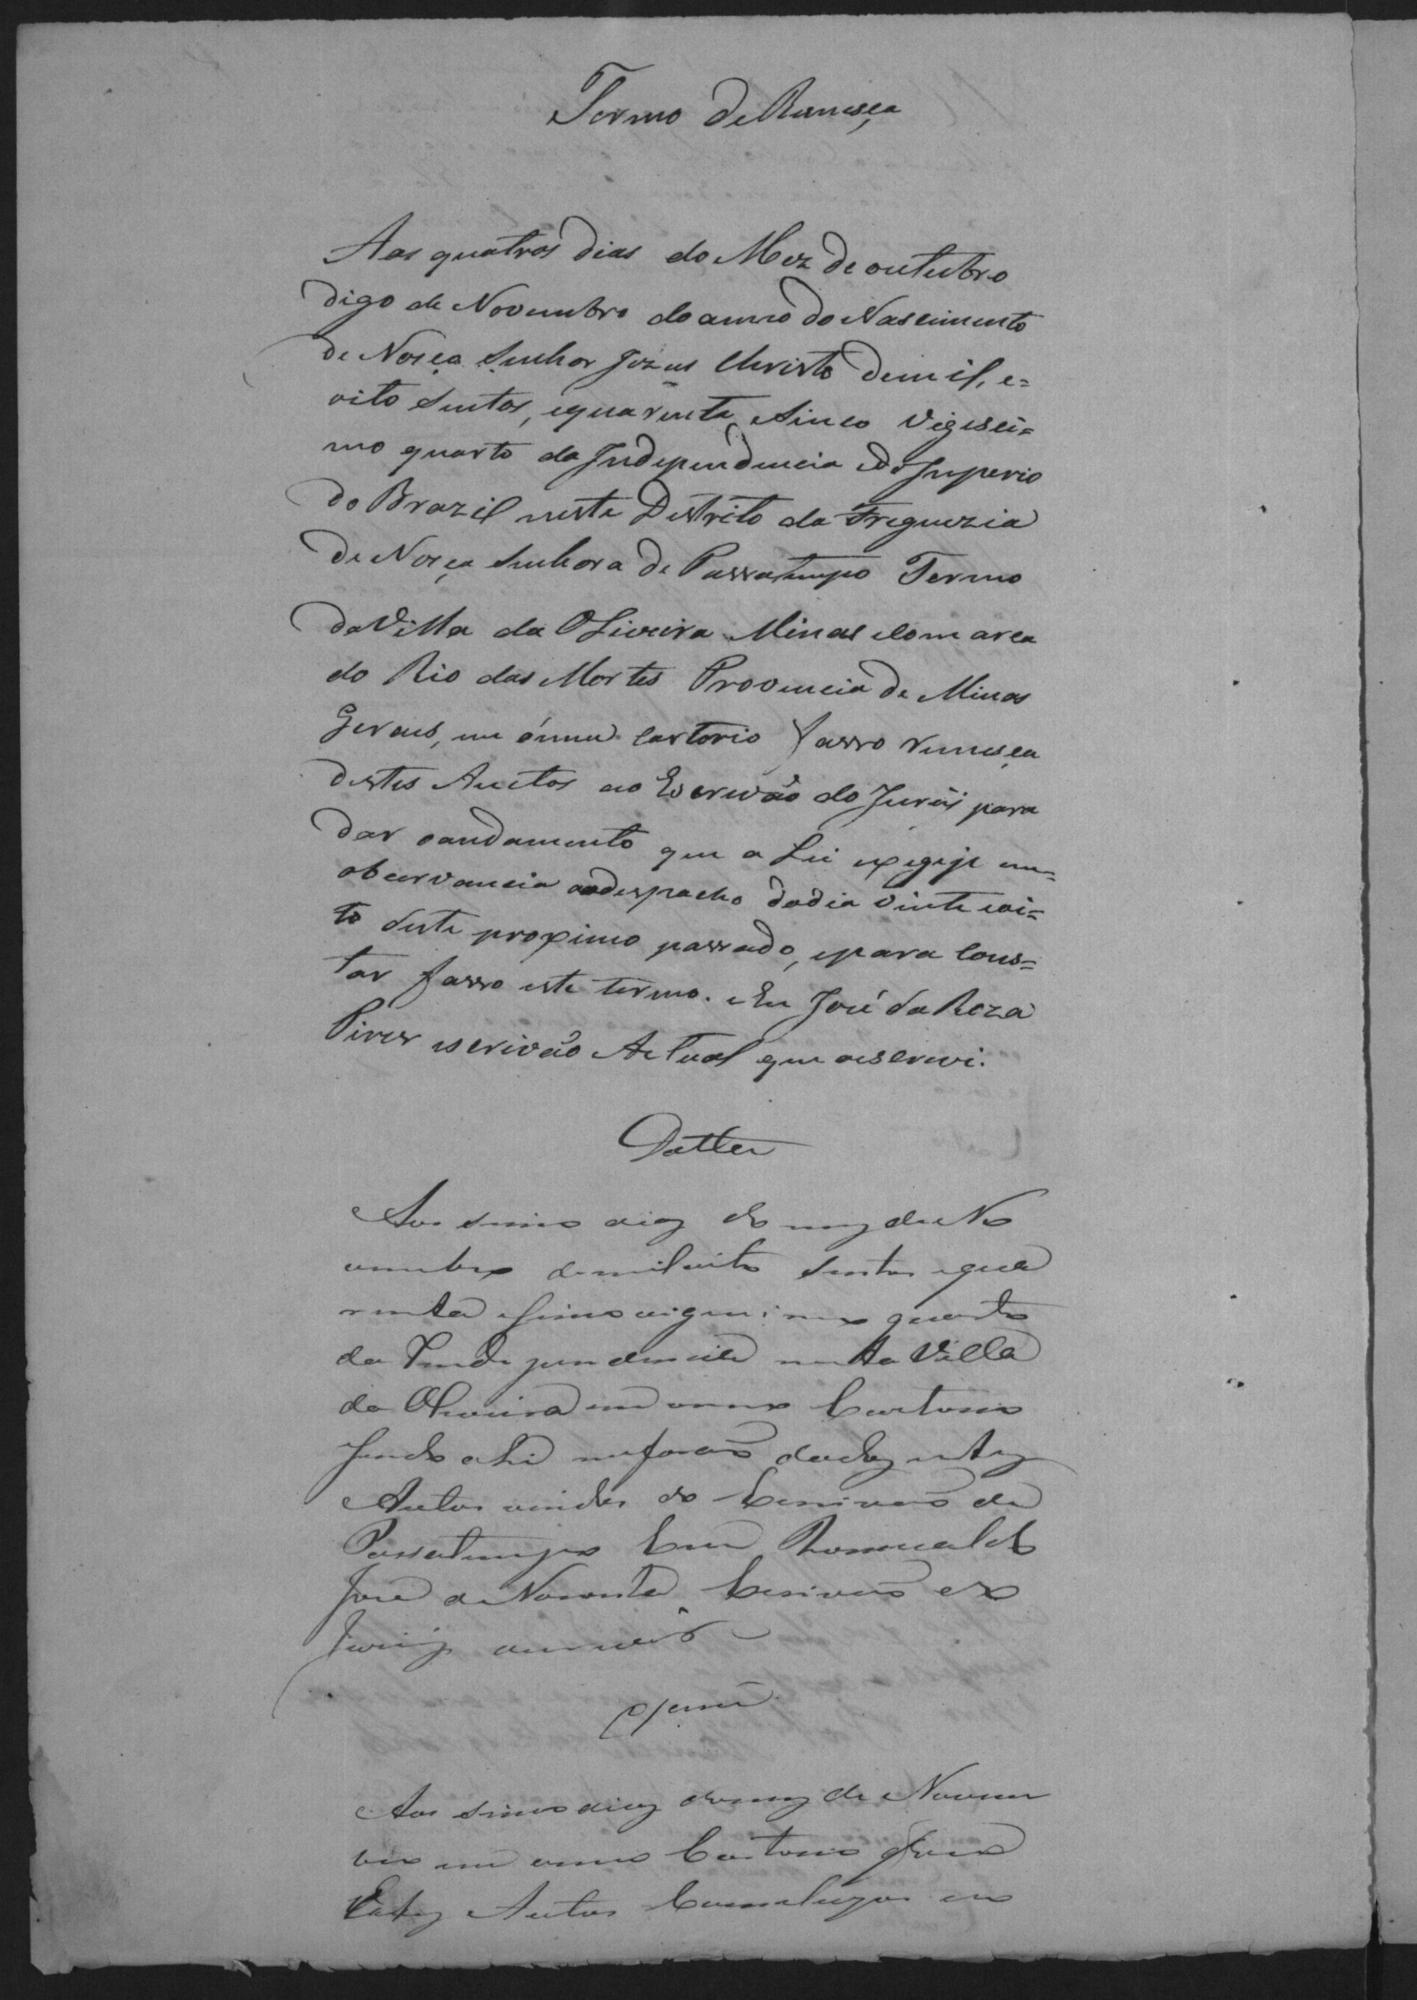 Termo de Remeça
Aos quatros dias do Mez de outubro
digo de Novembro do anno do Nascimento
de Noça Senhor Jezus Christo de mil, e=
oito sentos, equarenta, sinco vigesci=
mo quarto da Independencia edo Imperio
do Brazil neste Distrito da Freguezia
de Noça Senhora de Passatempo Termo
da Villa da Oliveira Minas Comarca
do Rio das Mortes Provincia de Minas
Gerais, em ómeu Cartorio fasso remeça
destes Auctos ao Escrivão do Jurÿ para
dar oandamento que a Lei exegije em=
obcervancia aodespacho dodia vinte eoi=
to deste proximo passado, epara Cons=
tar fasso este termo. Eu José da Reza
Pires escrivão Actual que oescrevi.
Datta
Aos sinco dias do mez de No
vembro demiloito sentos equa
renta esinco vigecimo quarto
da Independencia nesta Villa
da Oliveira em meu Cartorio
sendo ahi me forão dados estes
Autos vindos do Escrivão de
Passatempo Eu Romualdo
José de Escrivão do
Jury
Aos sinco dias do mez de Novem
bro em meu Cartorio faço
Estes Autos Concluzos ao